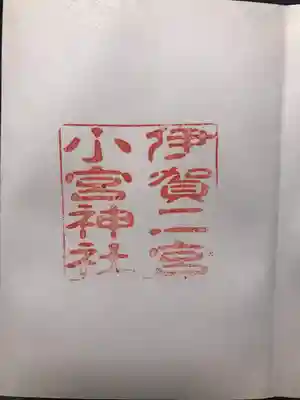 伊賀二宮
小宮神社